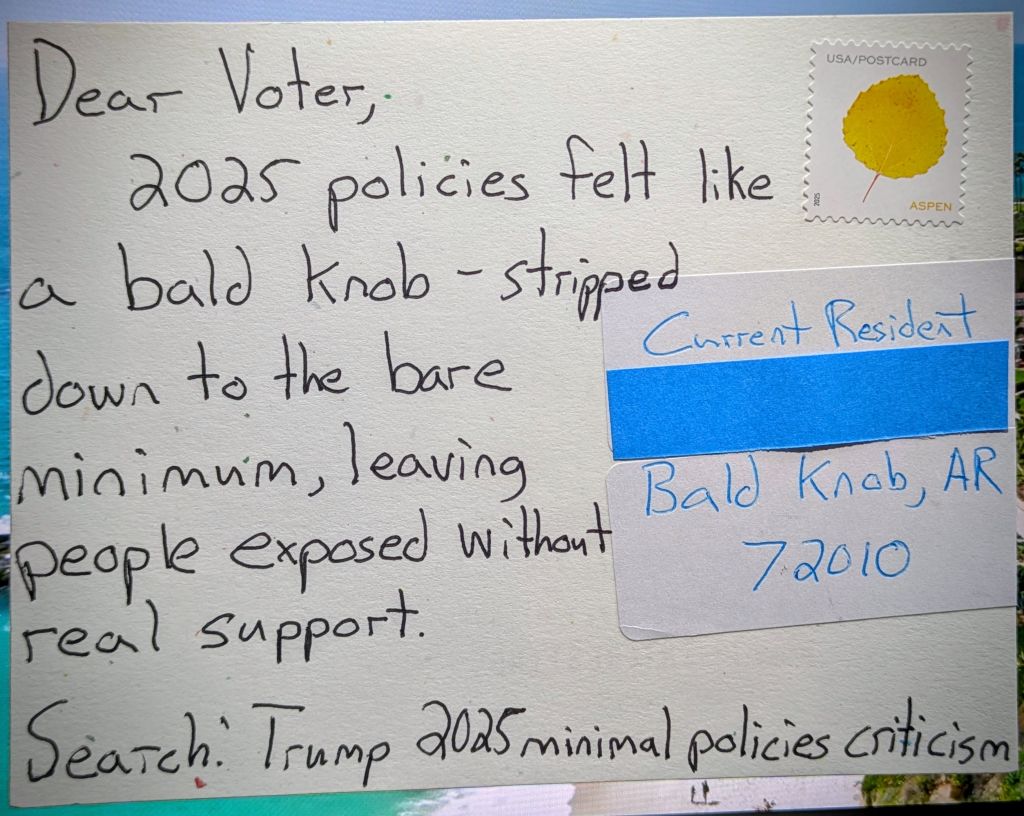 Dear Voter,
2025 policies felt like
a bald knob - stripped
down to the bare
minimum, leaving
people exposed without
real support.
Search: Trump 2025 minimal policies criticism
USA/POSTCARD
2025
ASPEN
Current Resident
Bald Knob, AR
72010